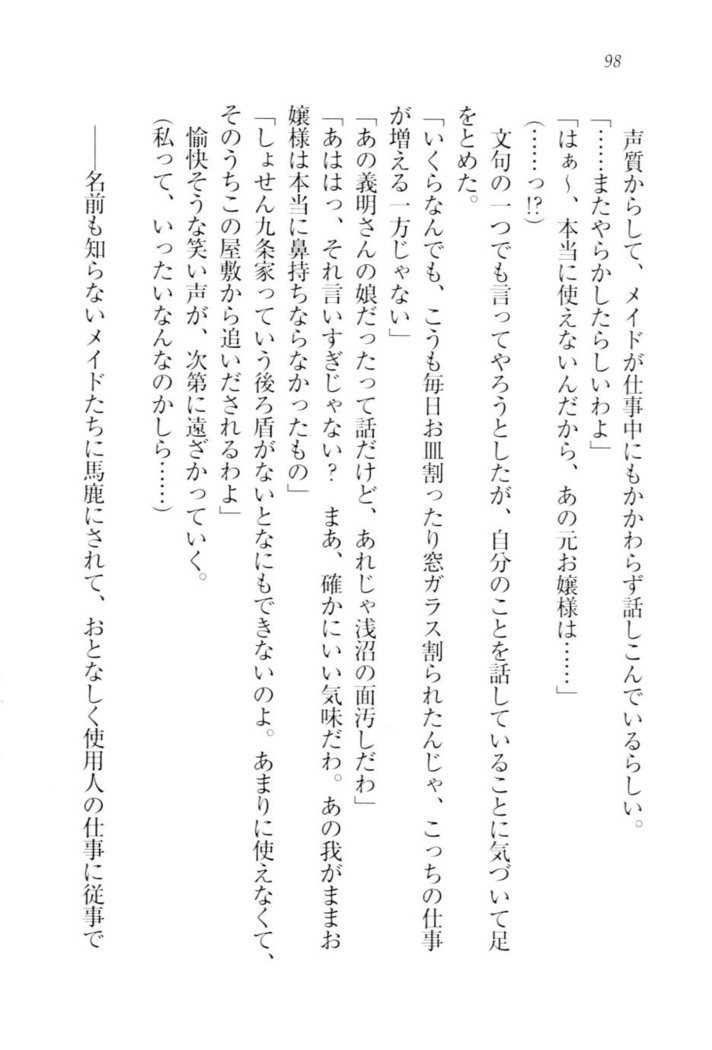 98
声質からして、メイドが仕事中にもかかわらず話しこんでいるらしい。
「……またやらかしたらしいわよ」
「はぁ〜、本当に使えないんだから、あの元お嬢様は……」
(……っ!?)
文句の一つでも言ってやろうとしたが、自分のことを話していることに気づいて足
をとめた。
「いくらなんでも、こうも毎日お皿割ったり窓ガラス割られたんじゃ、こっちの仕事
が増える一方じゃない」
「あの義明さんの娘だったって話だけど、あれじゃ浅沼の面汚しだわ」
「あははっ、それ言いすぎじゃない？　まあ、確かにいい気味だわ。あの我がままお
嬢様は本当に鼻持ちならなかったもの」
「しょせん九条家っていう後ろ盾がないとなにもできないのよ。あまりに使えなくて、
そのうちこの屋敷から追いだされるわよ」
愉快そうな笑い声が、次第に遠ざかっていく。
(私って、いったいなんなのかしら……)
――名前も知らないメイドたちに馬鹿にされて、おとなしく使用人の仕事に従事で